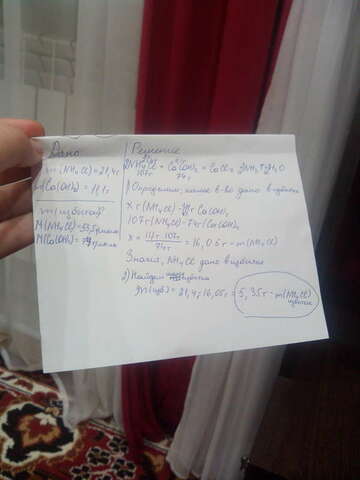 Дано:
m(NH₄Cl)=21,4г
Ca(OH)₂=11,1г
m(избыток)
M(NH₄Cl)=53,5г/моль
M(Ca(OH)₂)=74г/моль
Решение
2NH₄Cl + Ca(OH)₂ = CaCl₂ + 2NH₃ + 2H₂O
107г 74г
1) Определим, какое в-во дано в избытке
x г(NH₄Cl) - 11,1г Ca(OH)₂
107г(NH₄Cl) - 74г Ca(OH)₂
x = 11,1г·107г / 74г = 16,05г - m(NH₄Cl)
Значит, NH₄Cl дано в избытке
2) Найдем избыток
m(изб) = 21,4г-16,05г = 5,35г - m(NH₄Cl)
избыток